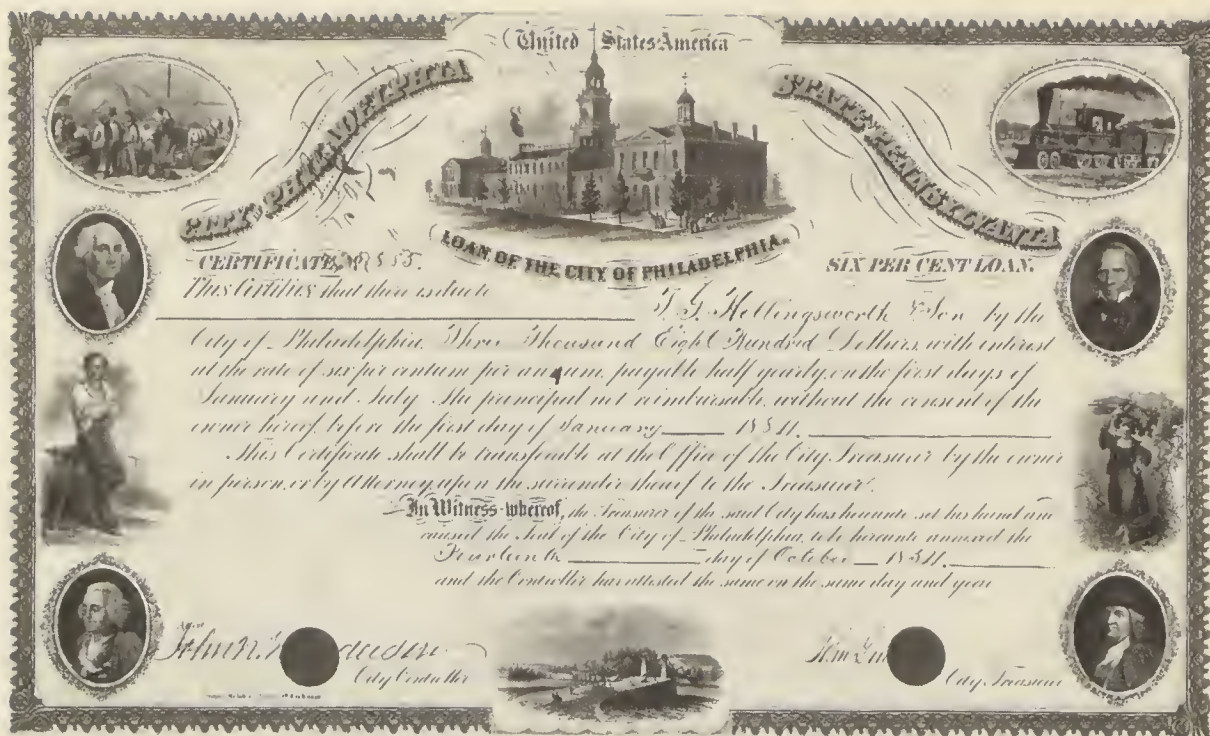 United States America
CITY OF PHILADELPHIA
STATE OF PENNSYLVANIA
LOAN OF THE CITY OF PHILADELPHIA.
CERTIFICATE, No
SIX PER CENT LOAN.
This Certifies that there is due to
T. G. Hollingsworth & Son by the
City of Philadelphia, Three Thousand Eight Hundred Dollars, with interest
at the rate of six per centum per annum, payable half yearly, on the first days of
January and July. The principal not reimbursable, without the consent of the
owner hereof, before the first day of January
This Certificate shall be transferable at the Office of the City Treasurer by the owner
in person, or by Attorney, upon the surrender thereof to the Treasurer.
In Witness whereof, the Treasurer of the said City has hereunto set his hand and
caused the Seal of the City of Philadelphia, to be hereunto annexed the
day of October
and the Controller has attested the same on the same day and year
John N.
Wm
City Controller
City Treasurer